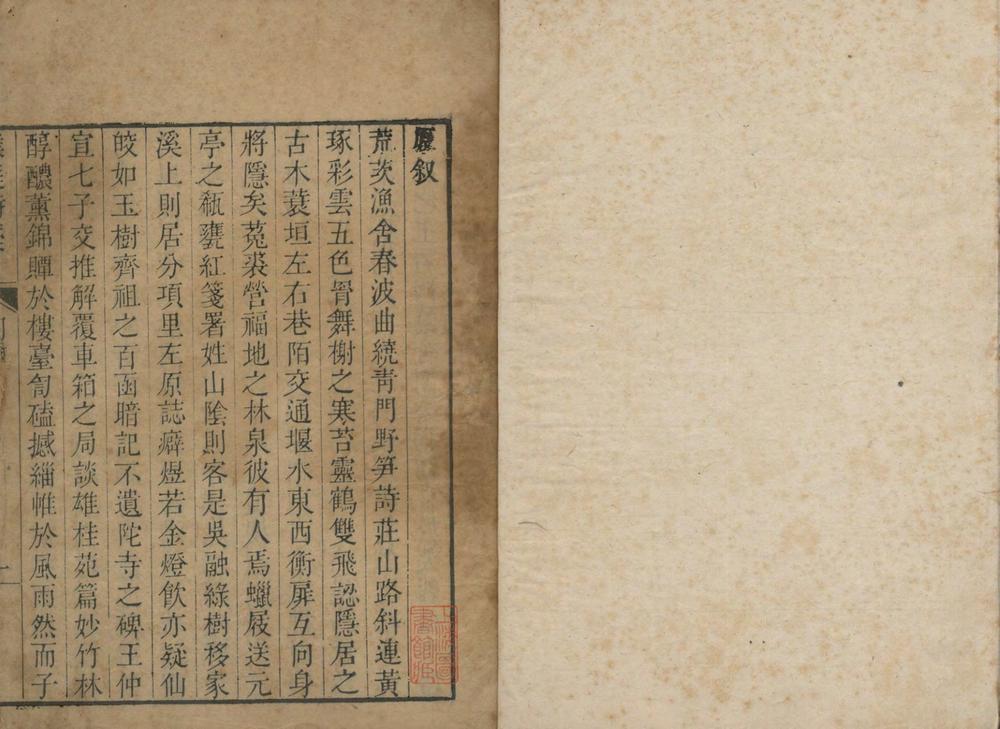 原叙
荒茨漁舍春波曲繞青門野笋詩莊山路斜連黃
琢彩雲五色骨舞榭之寒苔靈鶴雙飛認隱居之
古木蓑垣左右巷陌交通堰水東西衡扉互向身
將隱矣菟裘營福地之林泉彼有人焉蠟屐送元
亭之瓻甕紅箋署姓山陰則客是吳融綠樹移家
溪上則居分項里左原誌癖煜若金燈飲亦疑仙
皎如玉樹齊祖之百函暗記不遺陀寺之碑王仲
宣七子交推解覆車箱之局談雄桂苑篇妙竹林
醇醲薰錦贉於樓臺訇磕撼緇帷於風雨然而子